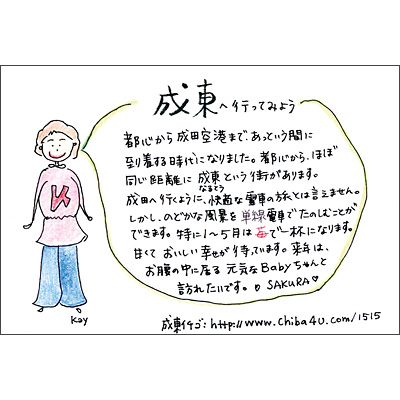 成東へ行ってみよう
都心から成田空港まで、あっという間に
到着する時代になりました。都心から、ほぼ
同じ距離に成東という街があります。
なるとう
成田へ行くように、快適な電車の旅とは言えません。
しかし、のどかな風景を単線電車でたのしむことが
できます。特に1〜5月は苺で一杯になります。
甘くておいしい幸せが待っています。来年は、
お腹の中に居る元気なBabyちゃんと
訪れたいです。♡SAKURA♡
K
Kay
成東イチゴ:http://www.chiba4u.com/1515